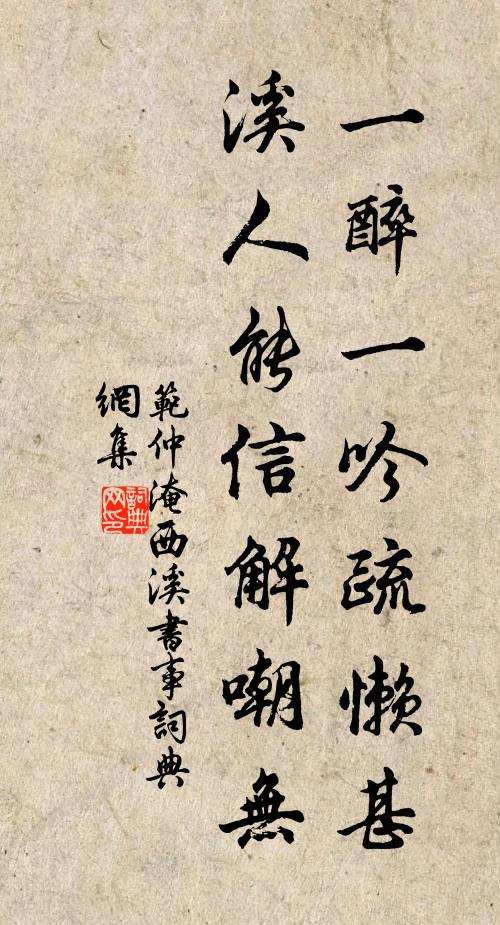 一醉一吟疏懶甚
溪人能信解嘲無
範仲淹西溪書事詞典
網集
詞典
网印